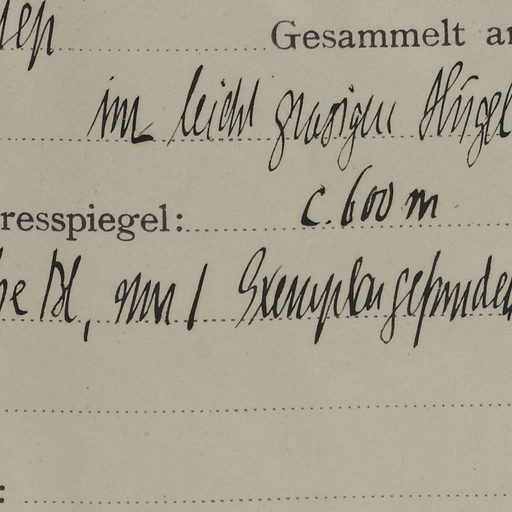 Gesammelt an
im leicht grasigen Hügel
resspiegel: c. 600 m
Bl, nur 1 Exemplar gefunden
: